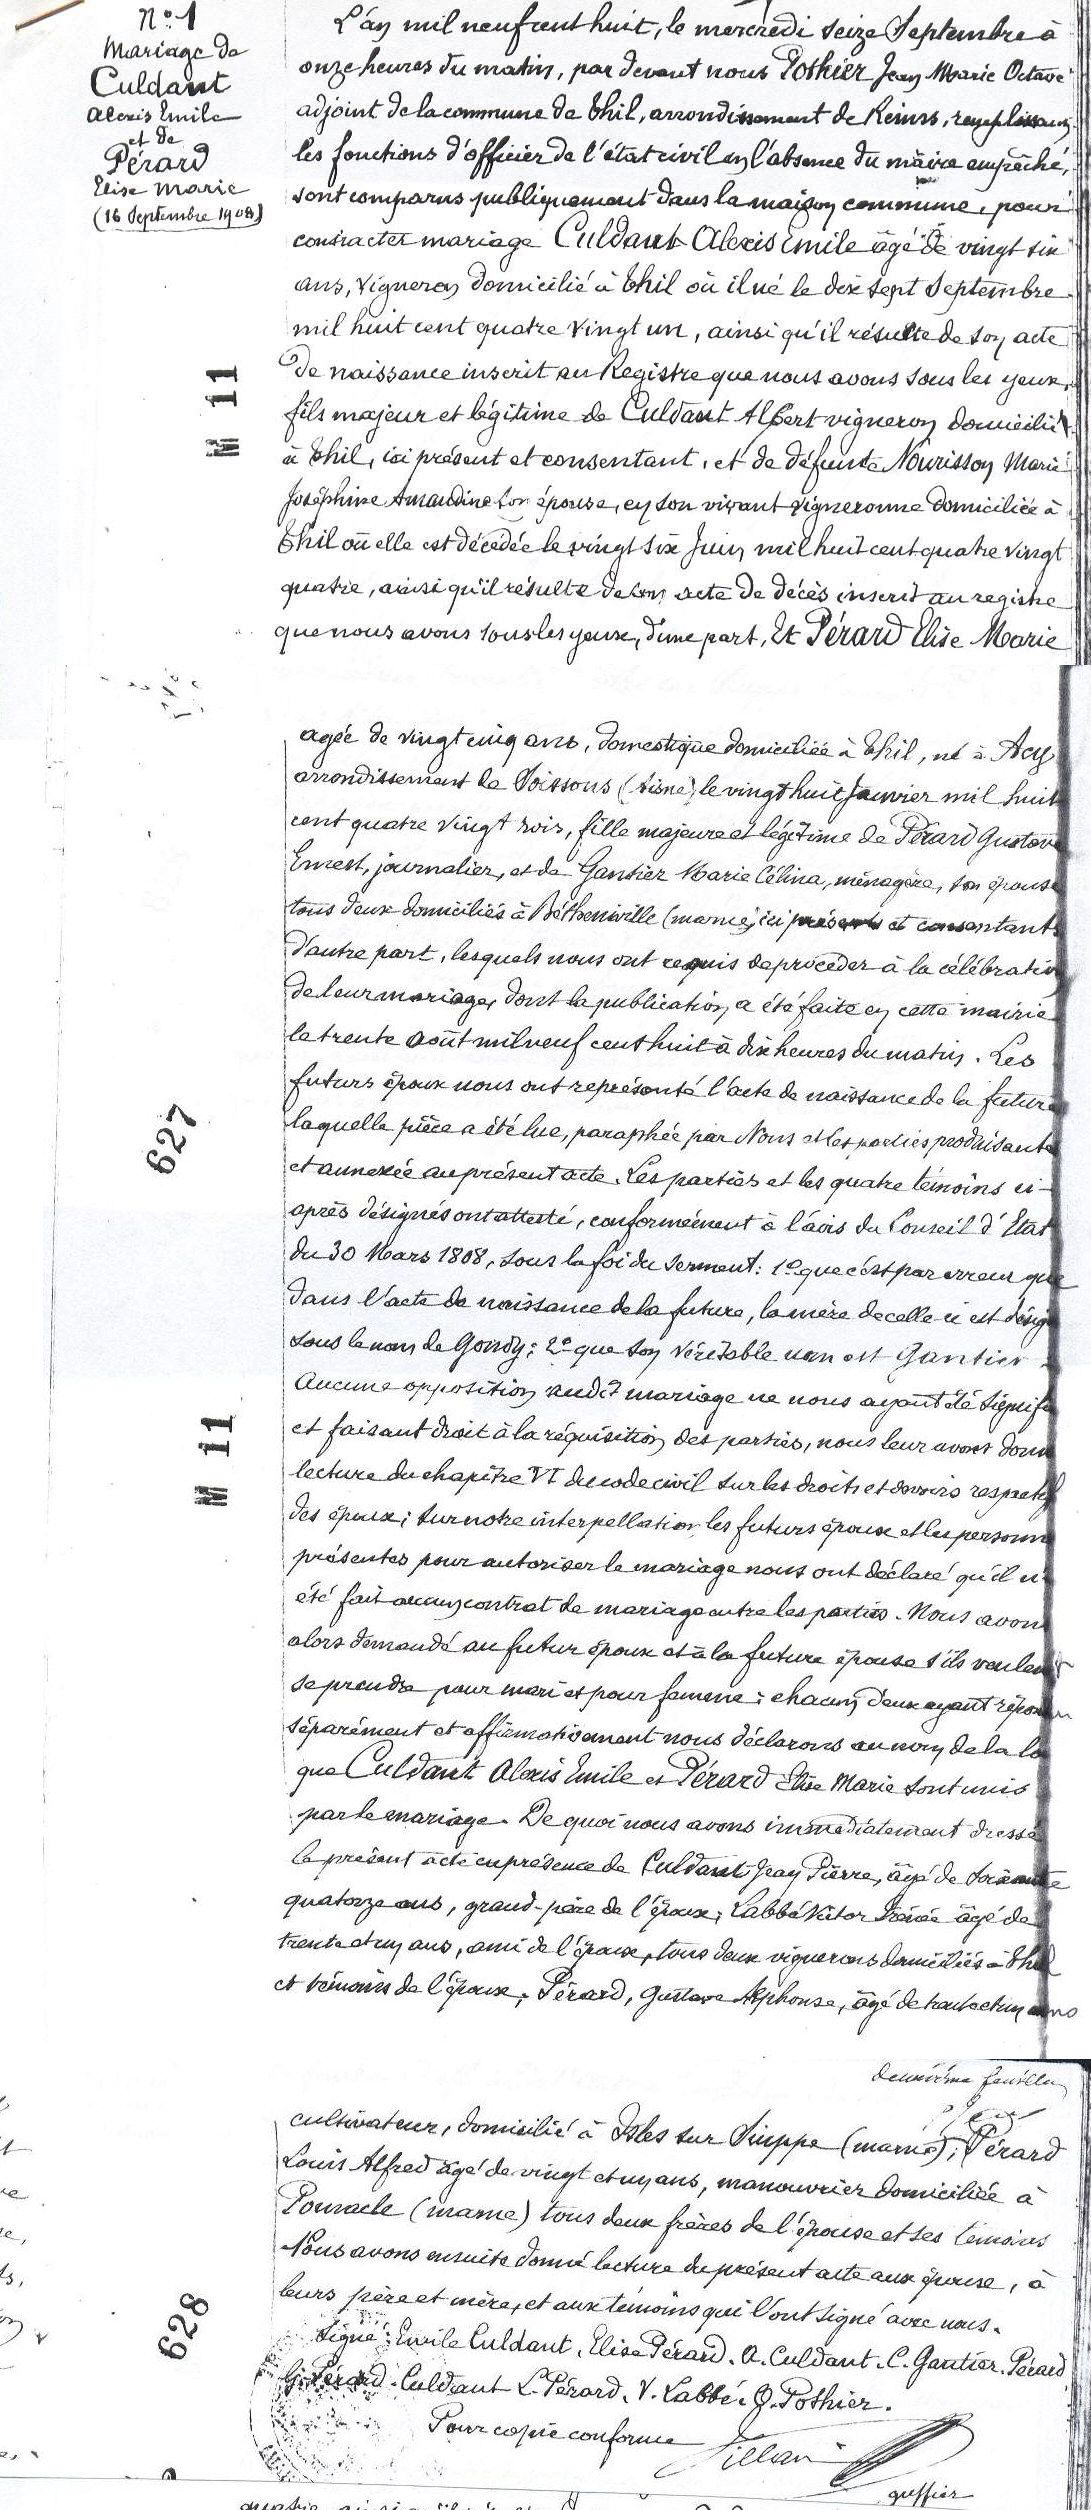 N° 1
Mariage de
Culdant
Alexis Emile
et de
Pérard
Elise Marie
(16 Septembre 1908)
L'an mil neuf cent huit, le mercredi seize Septembre à
onze heures du matin, par devant nous Pothier Jean Marie Octave
adjoint de la commune de Thil, arrondissement de Reims, remplissant
les fonctions d'officier de l'état civil en l'absence du maire empêché,
sont comparus publiquement dans la maison commune, pour
contracter mariage Culdant Alexis Emile âgé de vingt six
ans, vigneron domicilié à Thil où il né le dix sept Septembre
mil huit cent quatre vingt un, ainsi qu'il résulte de son acte
de naissance inscrit au Registre que nous avons sous les yeux,
fils majeur et légitime de Culdant Albert vigneron domicilié
à Thil, ici présent et consentant, et de défunte Nourisson Marie
Joséphine Amandine son épouse, en son vivant vigneronne domiciliée à
Thil où elle est décédée le vingt six Juin mil huit cent quatre vingt
quatre, ainsi qu'il résulte de son acte de décès inscrit au registre
que nous avons sous les yeux, d'une part, Et Pérard Elise Marie
M 11
agée de vingt cinq ans, domestique domiciliée à Thil, né à Acy
arrondissement de Soissons (Aisne) le vingt huit Janvier mil huit
cent quatre vingt trois, fille majeure et légitime de Pérard Gustave
Ernest, journalier, et de Gantier Marie Célina, ménagère, son épouse
tous deux domiciliés à Bétheniville (marne) ici présents et consentants
d'autre part, lesquels nous ont requis de procéder à la célébration
de leur mariage, dont la publication a été faite en cette mairie
le trente août mil neuf cent huit à dix heures du matin. Les
futurs époux nous ont représenté l'acte de naissance de la future
laquelle pièce a été lue, paraphée par Nous et les parties produisante
et annexée au présent acte. Les parties et les quatre témoins ci-
après désignés ont attesté, conformément à l'avis du Conseil d'Etat
du 30 Mars 1808, sous la foi du serment: 1° que c'est par erreur que
dans l'acte de naissance de la future, la mère de celle-ci est désig
sous le nom de Gondy; 2° que son véritable nom est Gantier.
Aucune opposition audit mariage ne nous ayant été signifi
et faisant droit à la réquisition des parties, nous leur avons donn
lecture du chapitre VI du code civil sur les droits et devoirs respectif
des époux; sur notre interpellation les futurs époux et les personn
présentes pour autoriser le mariage nous ont déclaré qu'il n'
été fait aucun contrat de mariage entre les parties. Nous avons
alors demandé au futur époux et à la future épouse s'ils veulent
se prendre pour mari et pour femme; chacun d'eux ayant répon
séparément et affirmativement nous déclarons au nom de la loi
que Culdant Alexis Emile et Pérard Elise Marie sont unis
par le mariage. De quoi nous avons immédiatement dressé
le présent acte en présence de Culdant Jean Pierre, âgé de soixante
quatorze ans, grand-père de l'époux; Labbé Victor Irénée âgé de
trente et un ans, ami de l'époux, tous deux vignerons domiciliés à Thil
et témoins de l'époux; Pérard, Gustave Alphonse, âgé de trente et un ans
627
M 11
deuxième feuillet
cultivateur, domicilié à Isles sur Suippe (marne); Pérard
Louis Alfred âgé de vingt et un ans, manouvrier domiciliée à
Pomacle (marne) tous deux frères de l'épouse et ses témoins
Nous avons ensuite donné lecture du présent acte aux époux, à
leurs père et mère, et aux témoins qui l'ont signé avec nous.
Signé: Emile Culdant, Elise Pérard. A. Culdant. C. Gantier. Pérard
G. Pérard. Culdant L. Pérard. V. Labbé. O. Pothier.
Pour copie conforme
greffier
628